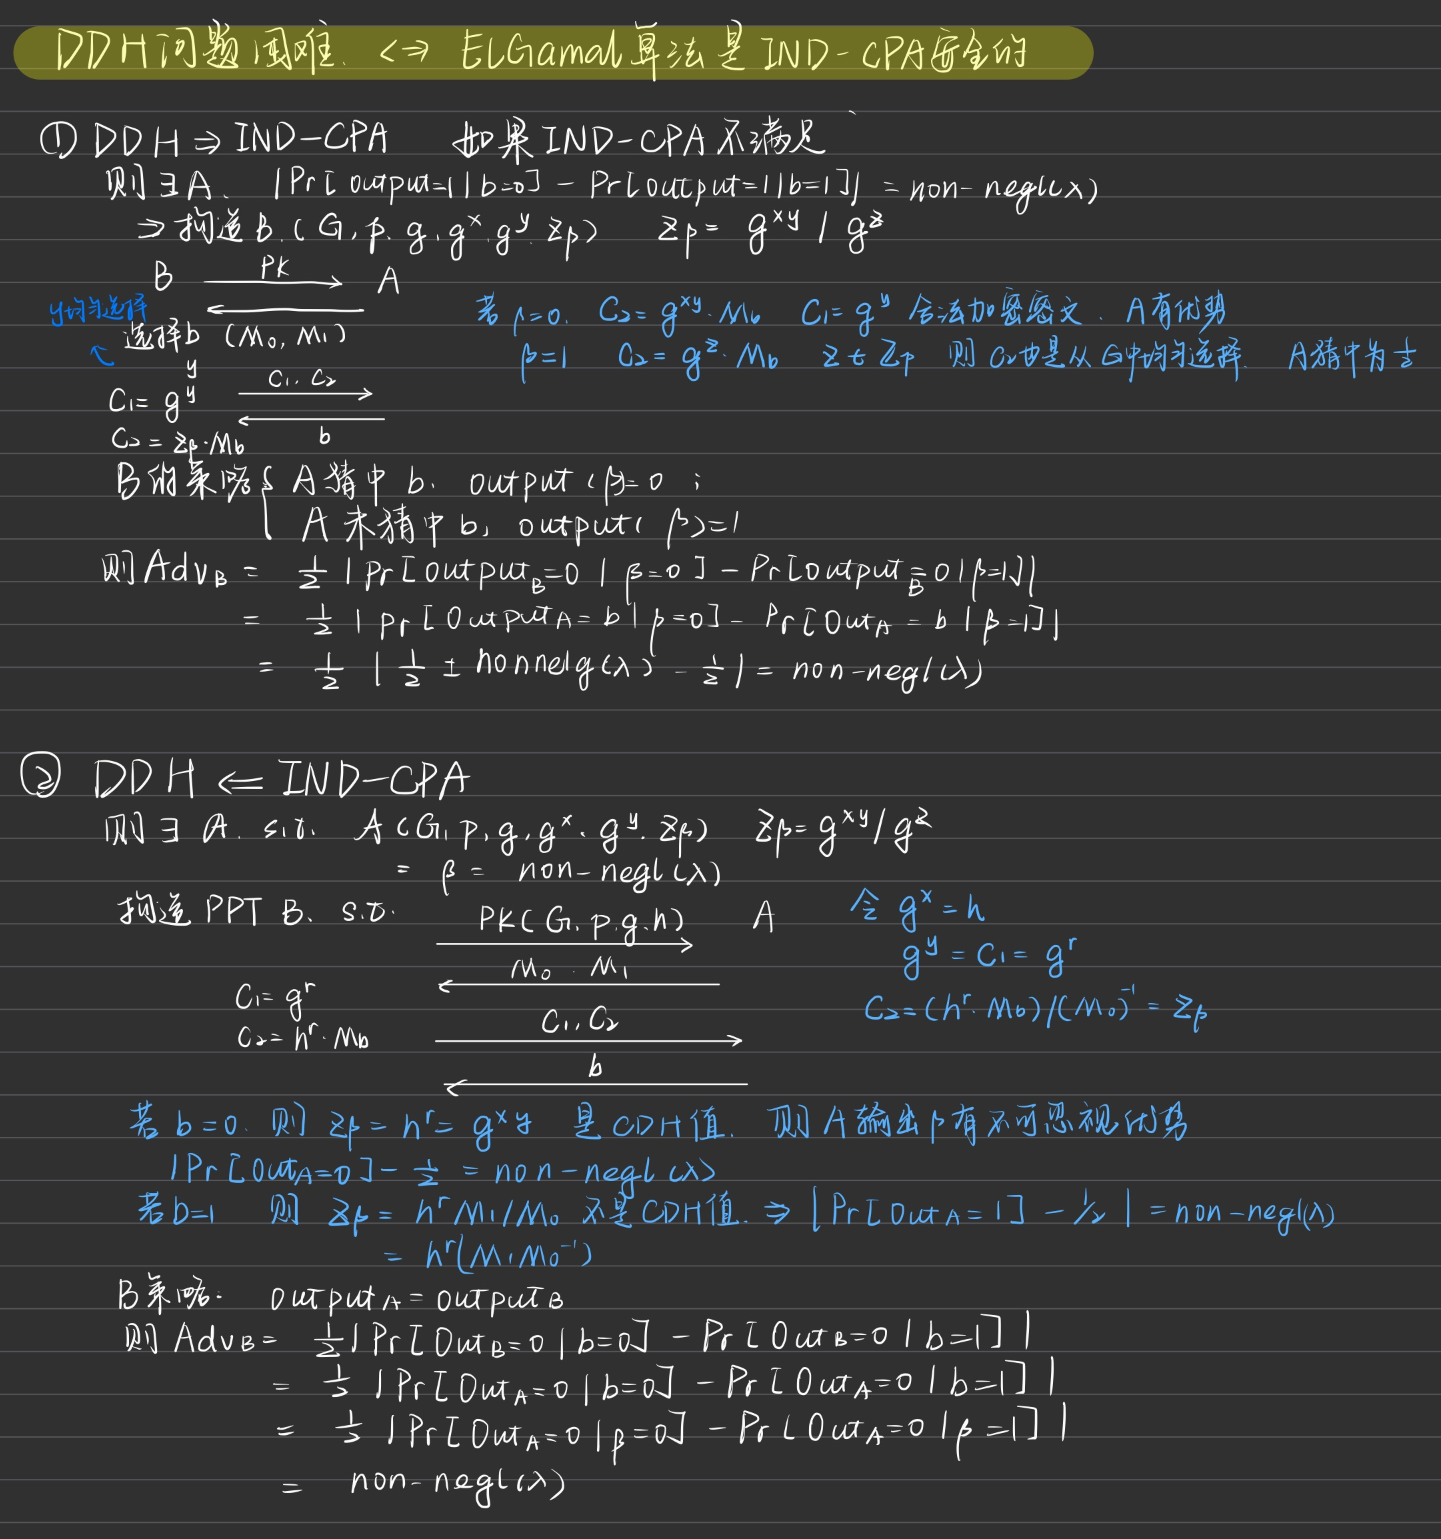 DDH问题困难. <=> ELGamal算法是IND-CPA安全的
① DDH ⇒ IND-CPA 如果IND-CPA不满足
则∃A. |Pr[output=1|b=0] - Pr[output=1|b=1]| = non-negl(λ)
⇒ 构造B.(G, p. g, g^x, g^y. Zβ) Zβ = g^xy / g^z
B PK A
y均匀选择
选择b (M₀, M₁)
若β=0. C₂ = g^xy · M_b C₁ = g^y 合法加密密文. A有优势
β=1 C₂ = g^z · M_b z ∈ Zp 则C₂也是从G中均匀选择. A猜中为½
y
C₁ = g^y C₁, C₂
C₂ = Zβ·M_b b
B的策略{ A猜中b, output(β)=0;
A未猜中b, output(β)=1
则Adv_B = ½ |Pr[output_B=0 | β=0] - Pr[output_B=0|β=1]|
= ½ |Pr[Output_A = b | β=0] - Pr[Out_A = b | β=1]|
= ½ | ½ ± nonnelg(λ) - ½ | = non-negl(λ)
② DDH ⇐ IND-CPA
则∃ A. s.t. A(G, p, g, g^x, g^y. Zβ) Zβ = g^xy / g^z
= β = non-negl(λ)
构造PPT B. s.t. PK(G, p. g. h) A
令 g^x = h
M₀ . M₁
g^y = C₁ = g^r
C₁ = g^r
C₂ = h^r · M_b C₁, C₂
C₂ = (h^r · M_b)/(M₀)^-1 = Zβ
b
若b=0. 则 Zβ = h^r = g^xy 是CDH值. 则A输出β有不可忽视优势
|Pr[Out_A=0] - ½ = non-negl(λ)
若b=1 则 Zβ = h^r M₁/M₀ 不是CDH值. ⇒ |Pr[Out_A=1] - 1/2 | = non-negl(λ)
= h^r(M₁M₀^-1)
B策略: output_A = output_B
则Adv_B = ½|Pr[Out_B=0 | b=0] - Pr[Out_B=0 | b=1]|
= ½ |Pr[Out_A=0 | b=0] - Pr[Out_A=0 | b=1]|
= ½ |Pr[Out_A=0 | β=0] - Pr[Out_A=0 | β=1]|
= non-negl(λ)